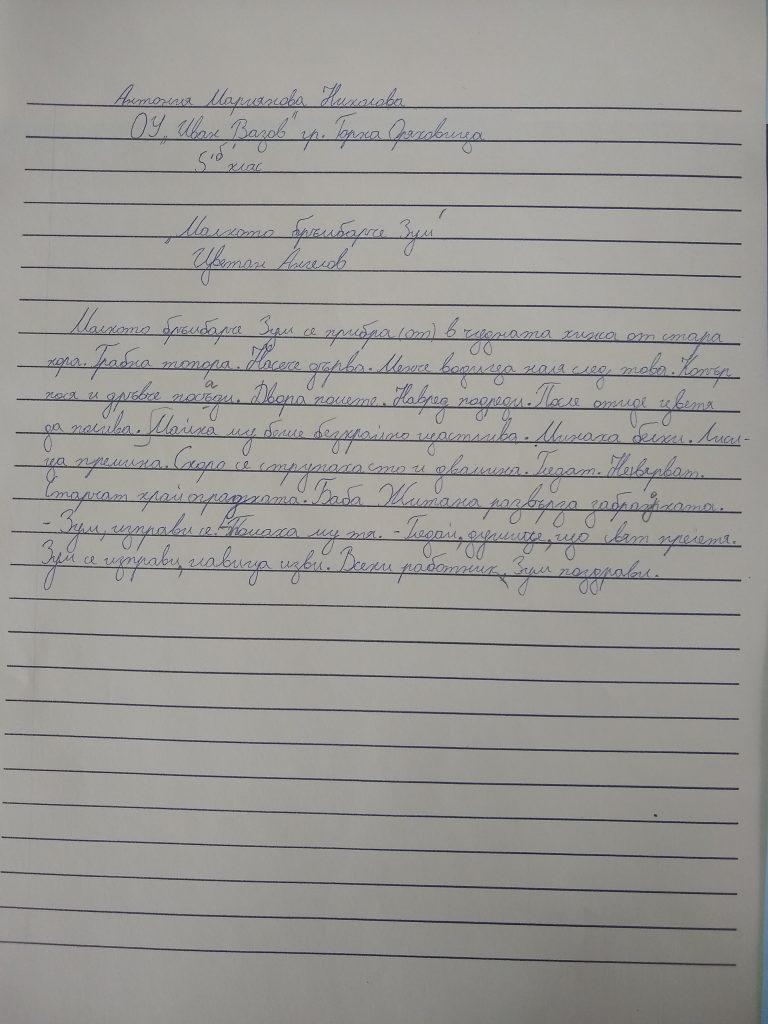 Антония Мариянова Николова
ОУ „Иван Вазов" гр. Горна Оряховица
5 'б' клас
„Малкото бръмбарче Зум"
Цветан Ангелов
Малкото бръмбарче Зум се прибра (от) в чудната хижа от стара
кора. Грабна топора. Насече дърва. Менче водица наля след това. Копър
пося и дръвче посади. Двора помете. Навред подреди. После отиде цветя
да полива. Майка му беше безкрайно щастлива. Минаха белки. Лиси-
ца премина. Скоро се струпаха сто и двамина. Гледат. Не вярват.
Стърчат край оградката. Баба Житана развърза забрадката.
- Зум, изправи се! - Помаха му тя. - Гледай, душице, що свят прелетя.
Зум се изправи, главица изви. Всеки работник, Зум поздрави.